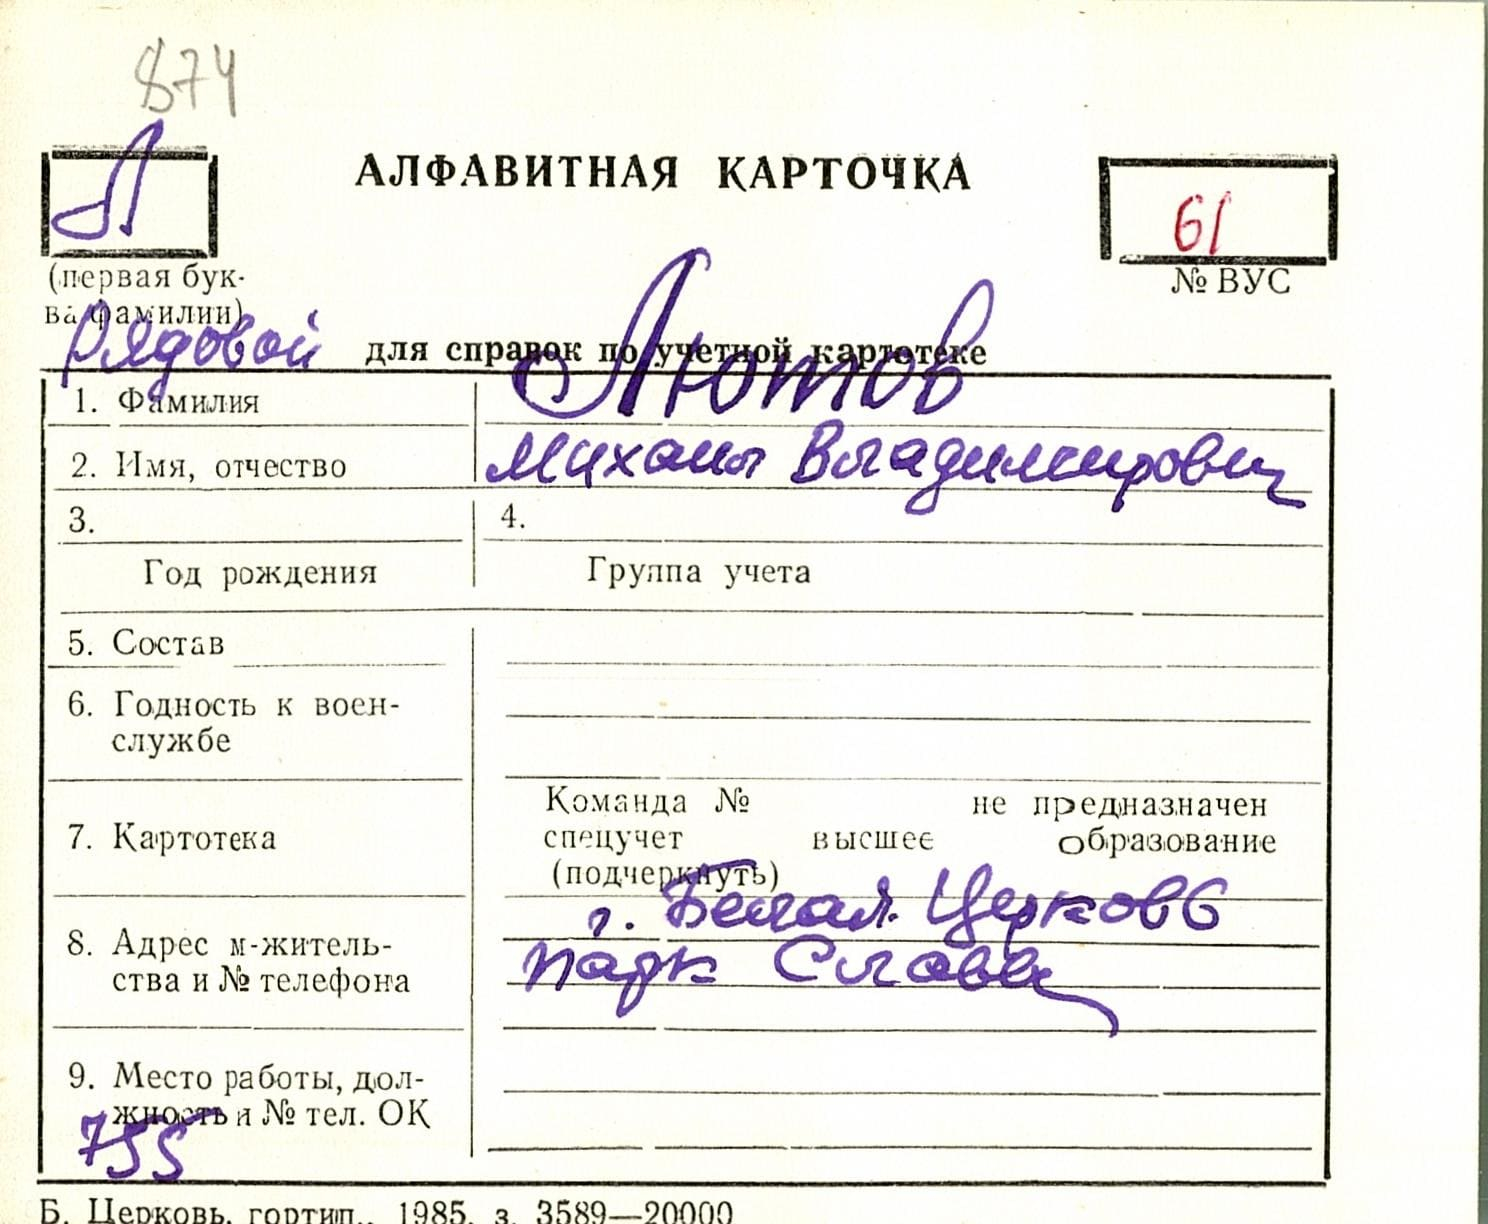 874
Л
АЛФАВИТНАЯ КАРТОЧКА
61
(первая бук-
ва фамилии)
№ ВУС
Рядовой
для справок по учетной картотеке
1. Фамилия Лютов
2. Имя, отчество Михаил Владимирович
3. 4.
Год рождения Группа учета
5. Состав
6. Годность к воен-
службе
7. Картотека
Команда № не предназначен
спецучет высшее образование
(подчеркнуть)
8. Адрес м-житель-
ства и № телефона
г. Белая Церковь
парк Славы
9. Место работы, дол-
жность и № тел. ОК
755
Б. Церковь, гортип., 1985, з. 3589—20000